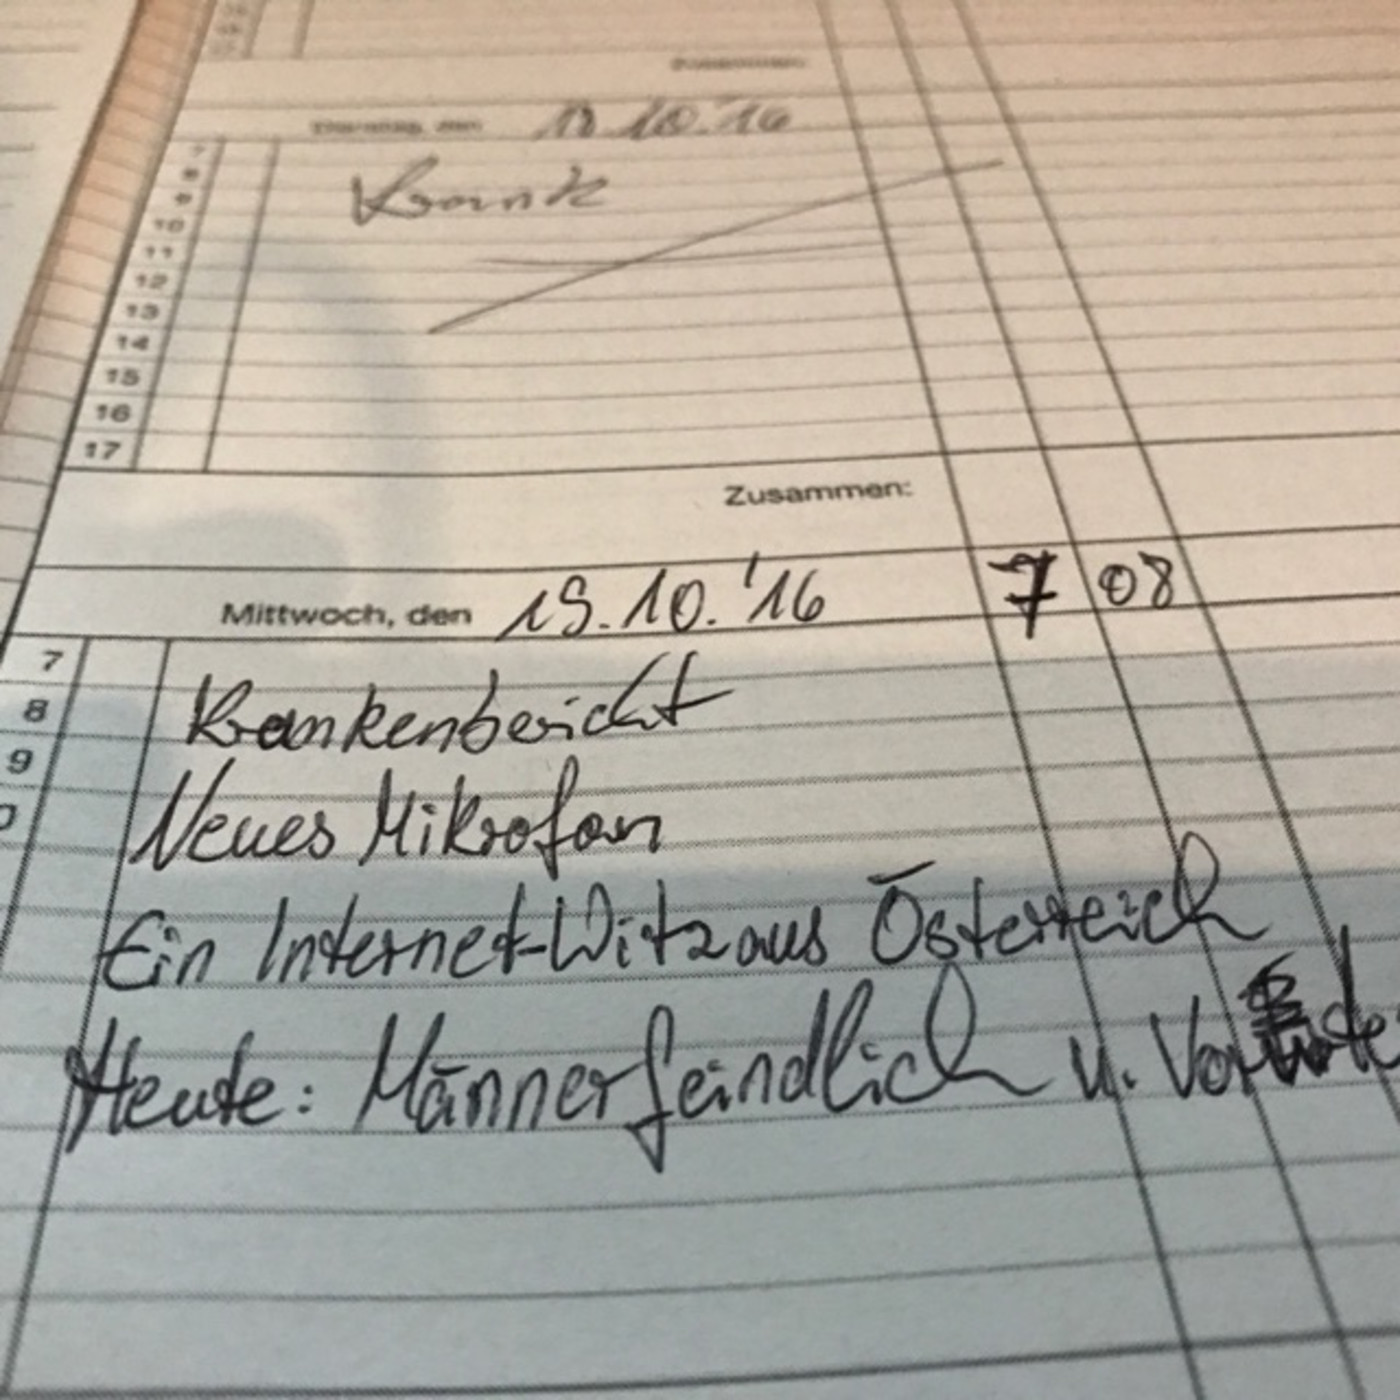 Zusammen:
Dienstag, den 18.10.'16
7
8
9
10
11
12
13
14
15
16
17
Krank
Zusammen:
Mittwoch, den 19.10.'16 7 08
7
8
9
Krankenbericht
Neues Mikrofon
Ein Internet-Witz aus Österreich
Heute: Männerfeindlich u.